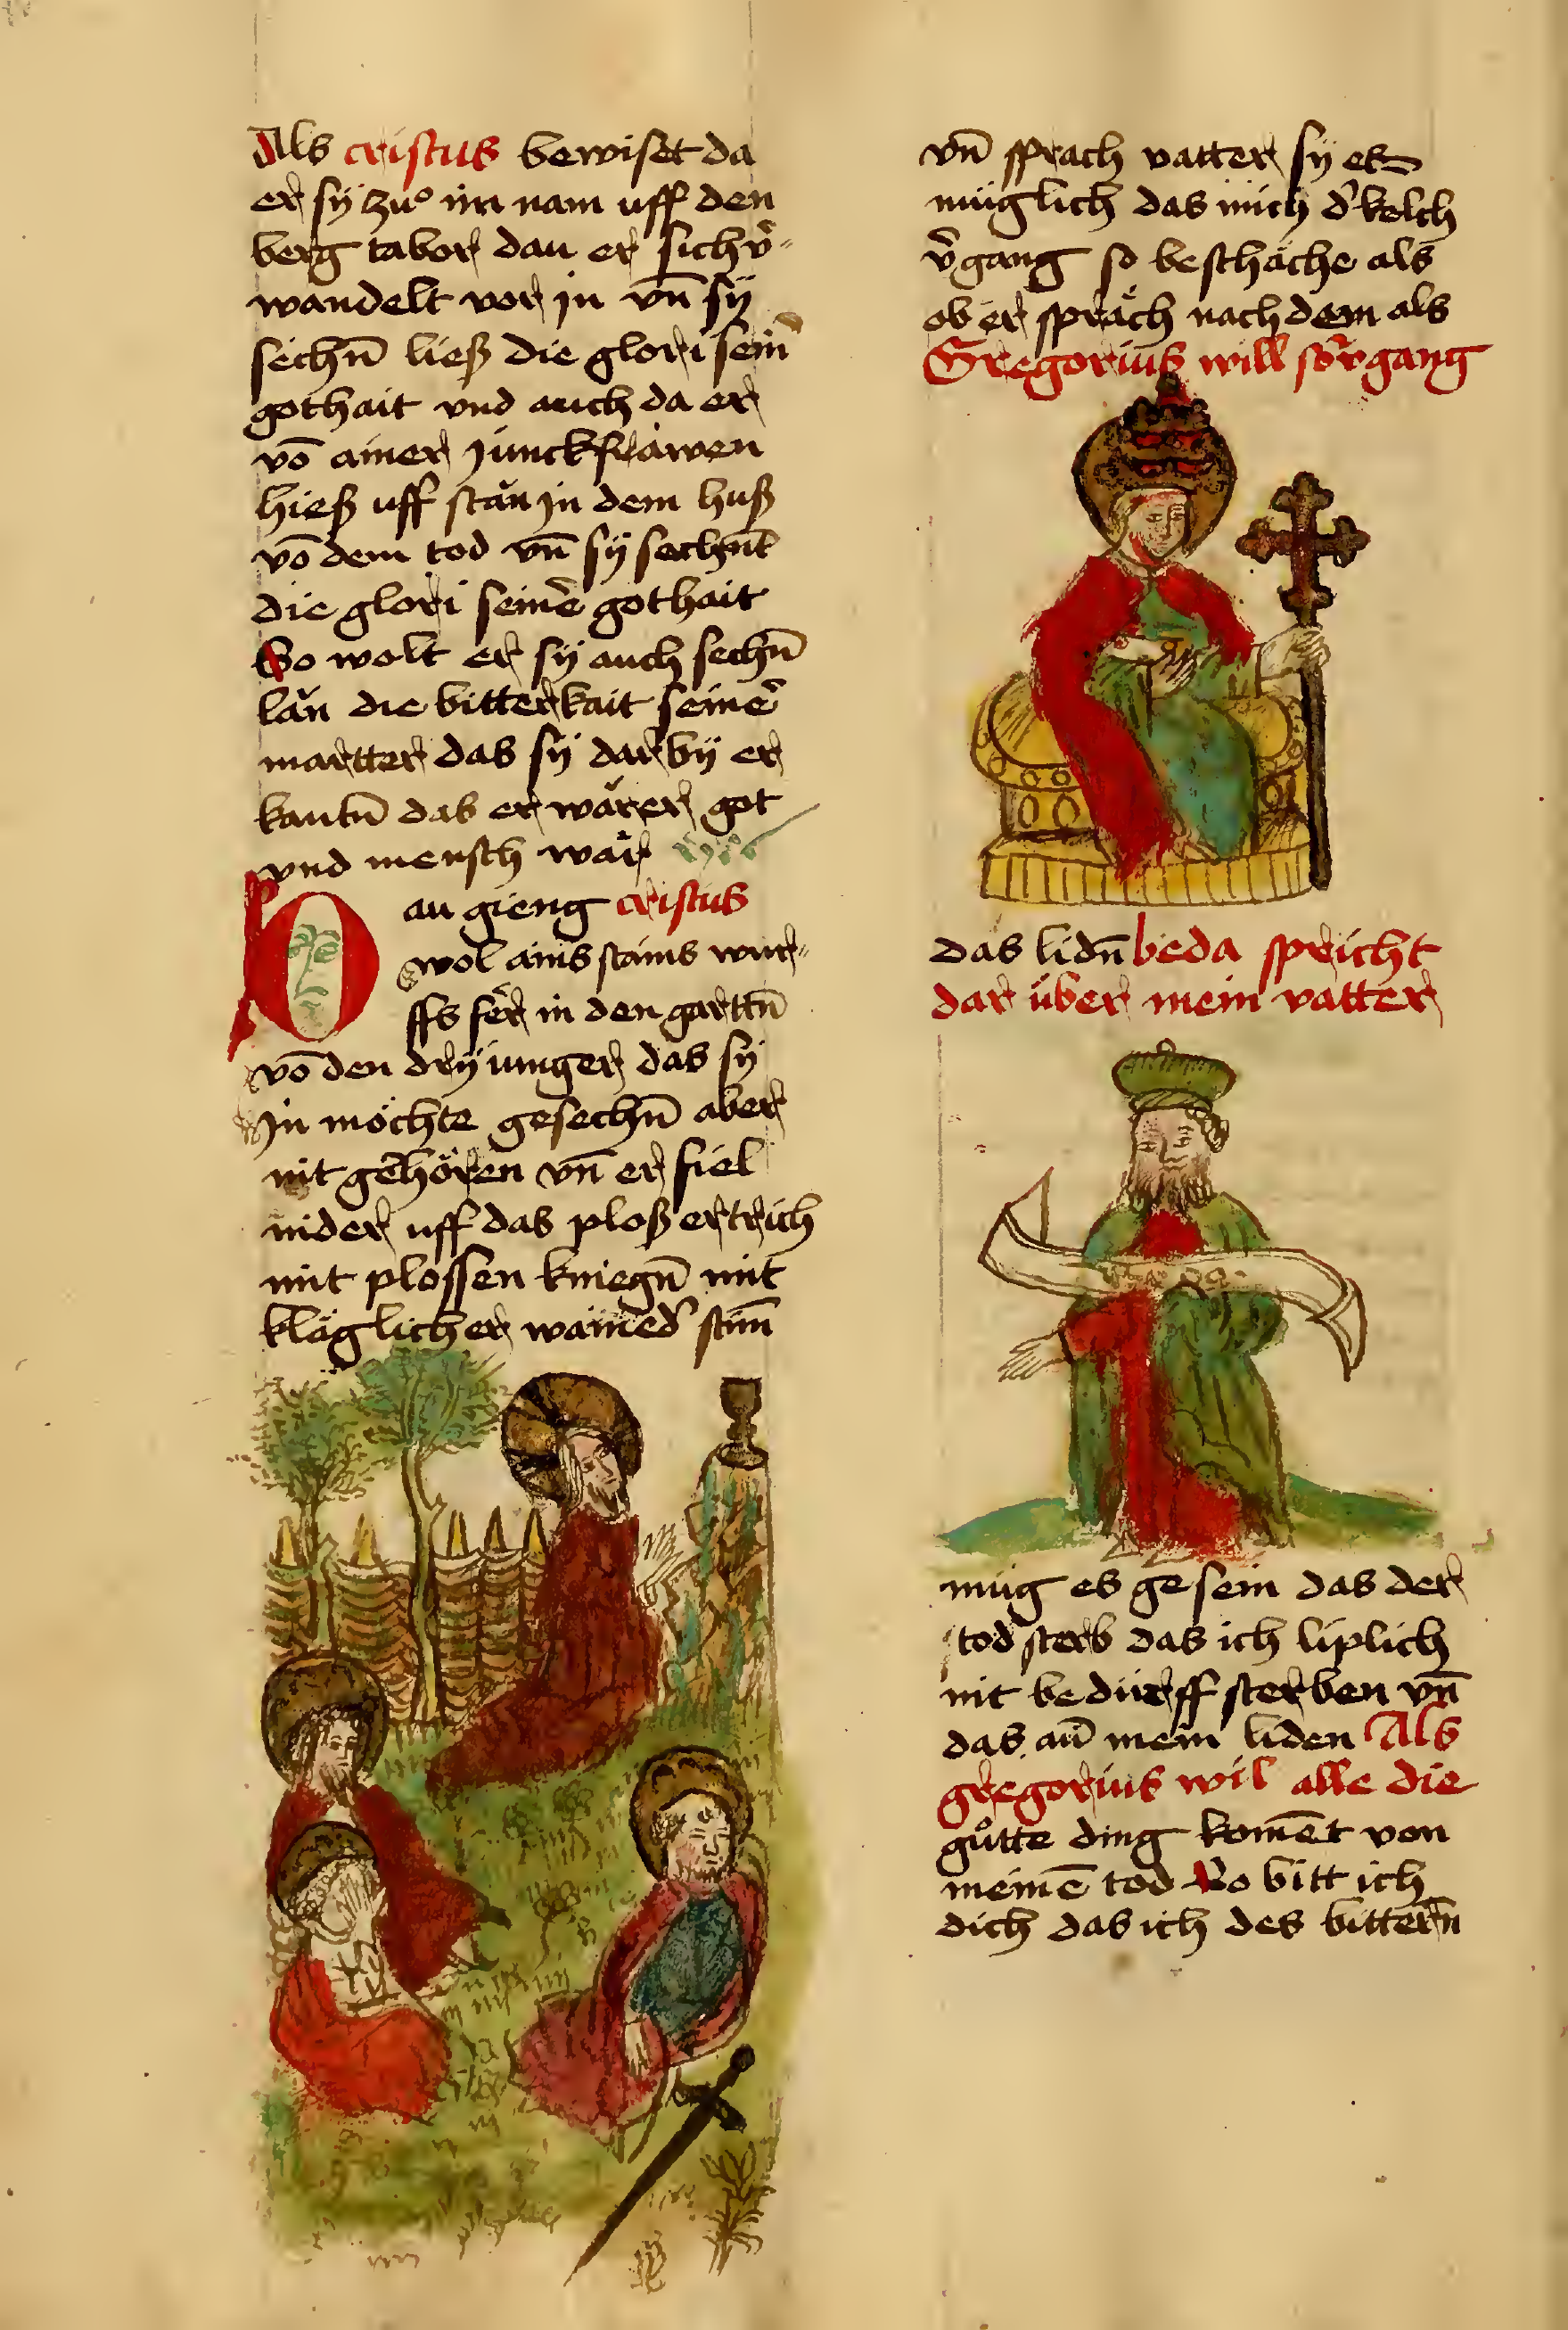 Als cristus bewiset da
er sÿ zuͦ im nam uff den
berg tabor dan er sich v̉⸗
wandelt vor jn vn̄ sÿ
sechn̄ ließ die glori sein̉
gothait vnd auch da er
vō ainer junckfrawen
hieß uff stăn jn dem huß
vō dem tod vn̄ sÿ sechnt̄
die glori seinẻ gothait
So wolt er sÿ auch sechn̄
lăn die bitterkait seinẻ
martter das sÿ dar bÿ er
kantn̄ das er wărer got
vnd mensch wăr
Dan gieng cristus
wol ains stains wur⸗
ffs fer̉ in den garttn̄
vō den drÿ iunger das sÿ
Jn möchte gesechn̄ aber
nit gehören vn̄ er fiel
nider uff das ploß ertrich
mit plossen kniegn̄ mit
kläglicher wained̉ stim̄
vn̄ sprach vatter sÿ es
müglich das mich d̉ kelch
v̉gang so beschäche als
ob er spräch nach dem als
Gregorius will so v̉gang
das lidn̄ beda spricht
dar über mein vatter
müg es ge sein das der
tod sterb das ich liplich
nit bedürff sterben vn̄
das an̄ mein liden Als
gregorius wil alle die
guͦtte ding kom̄et von
meinē tod So bitt ich
dich das ich des bittern̄